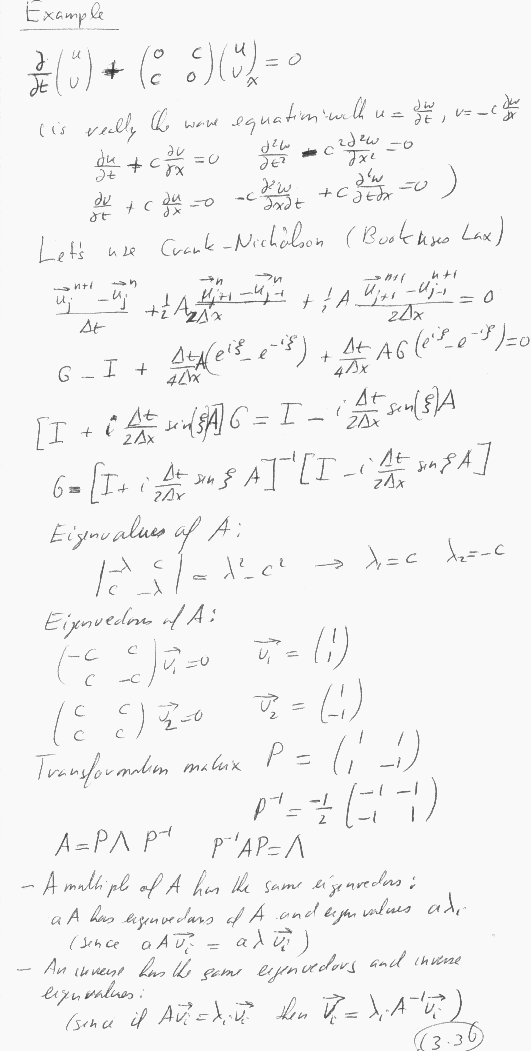 Example
∂/∂t (u v) + (0 c c 0) (u v)ₓ = 0
(is really the wave equation with u = ∂w/∂t, v = -c ∂w/∂x
∂u/∂t + c ∂v/∂x = 0 ∂²w/∂t² - c² ∂²w/∂x² = 0
∂v/∂t + c ∂u/∂x = 0 -c ∂²w/∂x∂t + c ∂²w/∂t∂x = 0 )
Let's use Crank-Nicholson (Book uses Lax)
(u⃗ⱼⁿ⁺¹ - u⃗ⱼⁿ)/Δt + ½ A (u⃗ⱼ₊₁ⁿ - u⃗ⱼ₋₁ⁿ)/2Δx + ½ A (u⃗ⱼ₊₁ⁿ⁺¹ - u⃗ⱼ₋₁ⁿ⁺¹)/2Δx = 0
G - I + Δt/4Δx A (e^{iξ} - e^{-iξ}) + Δt/4Δx AG (e^{iξ} - e^{-iξ}) = 0
[I + i Δt/2Δx sin(ξ) A] G = I - i Δt/2Δx sin(ξ) A
G = [I + i Δt/2Δx sin ξ A]⁻¹ [I - i Δt/2Δx sin ξ A]
Eigenvalues of A:
|-λ c c -λ| = λ² - c² → λ₁ = c λ₂ = -c
Eigenvectors of A:
(-c c c -c) v⃗₁ = 0 v⃗₁ = (1 1)
(c c c c) v⃗₂ = 0 v⃗₂ = (1 -1)
Transformation matrix P = (1 1 1 -1)
P⁻¹ = -1/2 (-1 -1 -1 1)
A = PΛP⁻¹ P⁻¹AP = Λ
- A multiple of A has the same eigenvectors:
aA has eigenvectors of A and eigenvalues aλᵢ
(since aAv⃗ᵢ = aλv⃗ᵢ)
- An inverse has the same eigenvectors and inverse
eigenvalues:
(since if Av⃗ᵢ = λᵢv⃗ᵢ then v⃗ᵢ = λᵢA⁻¹v⃗ᵢ)
(3.36)